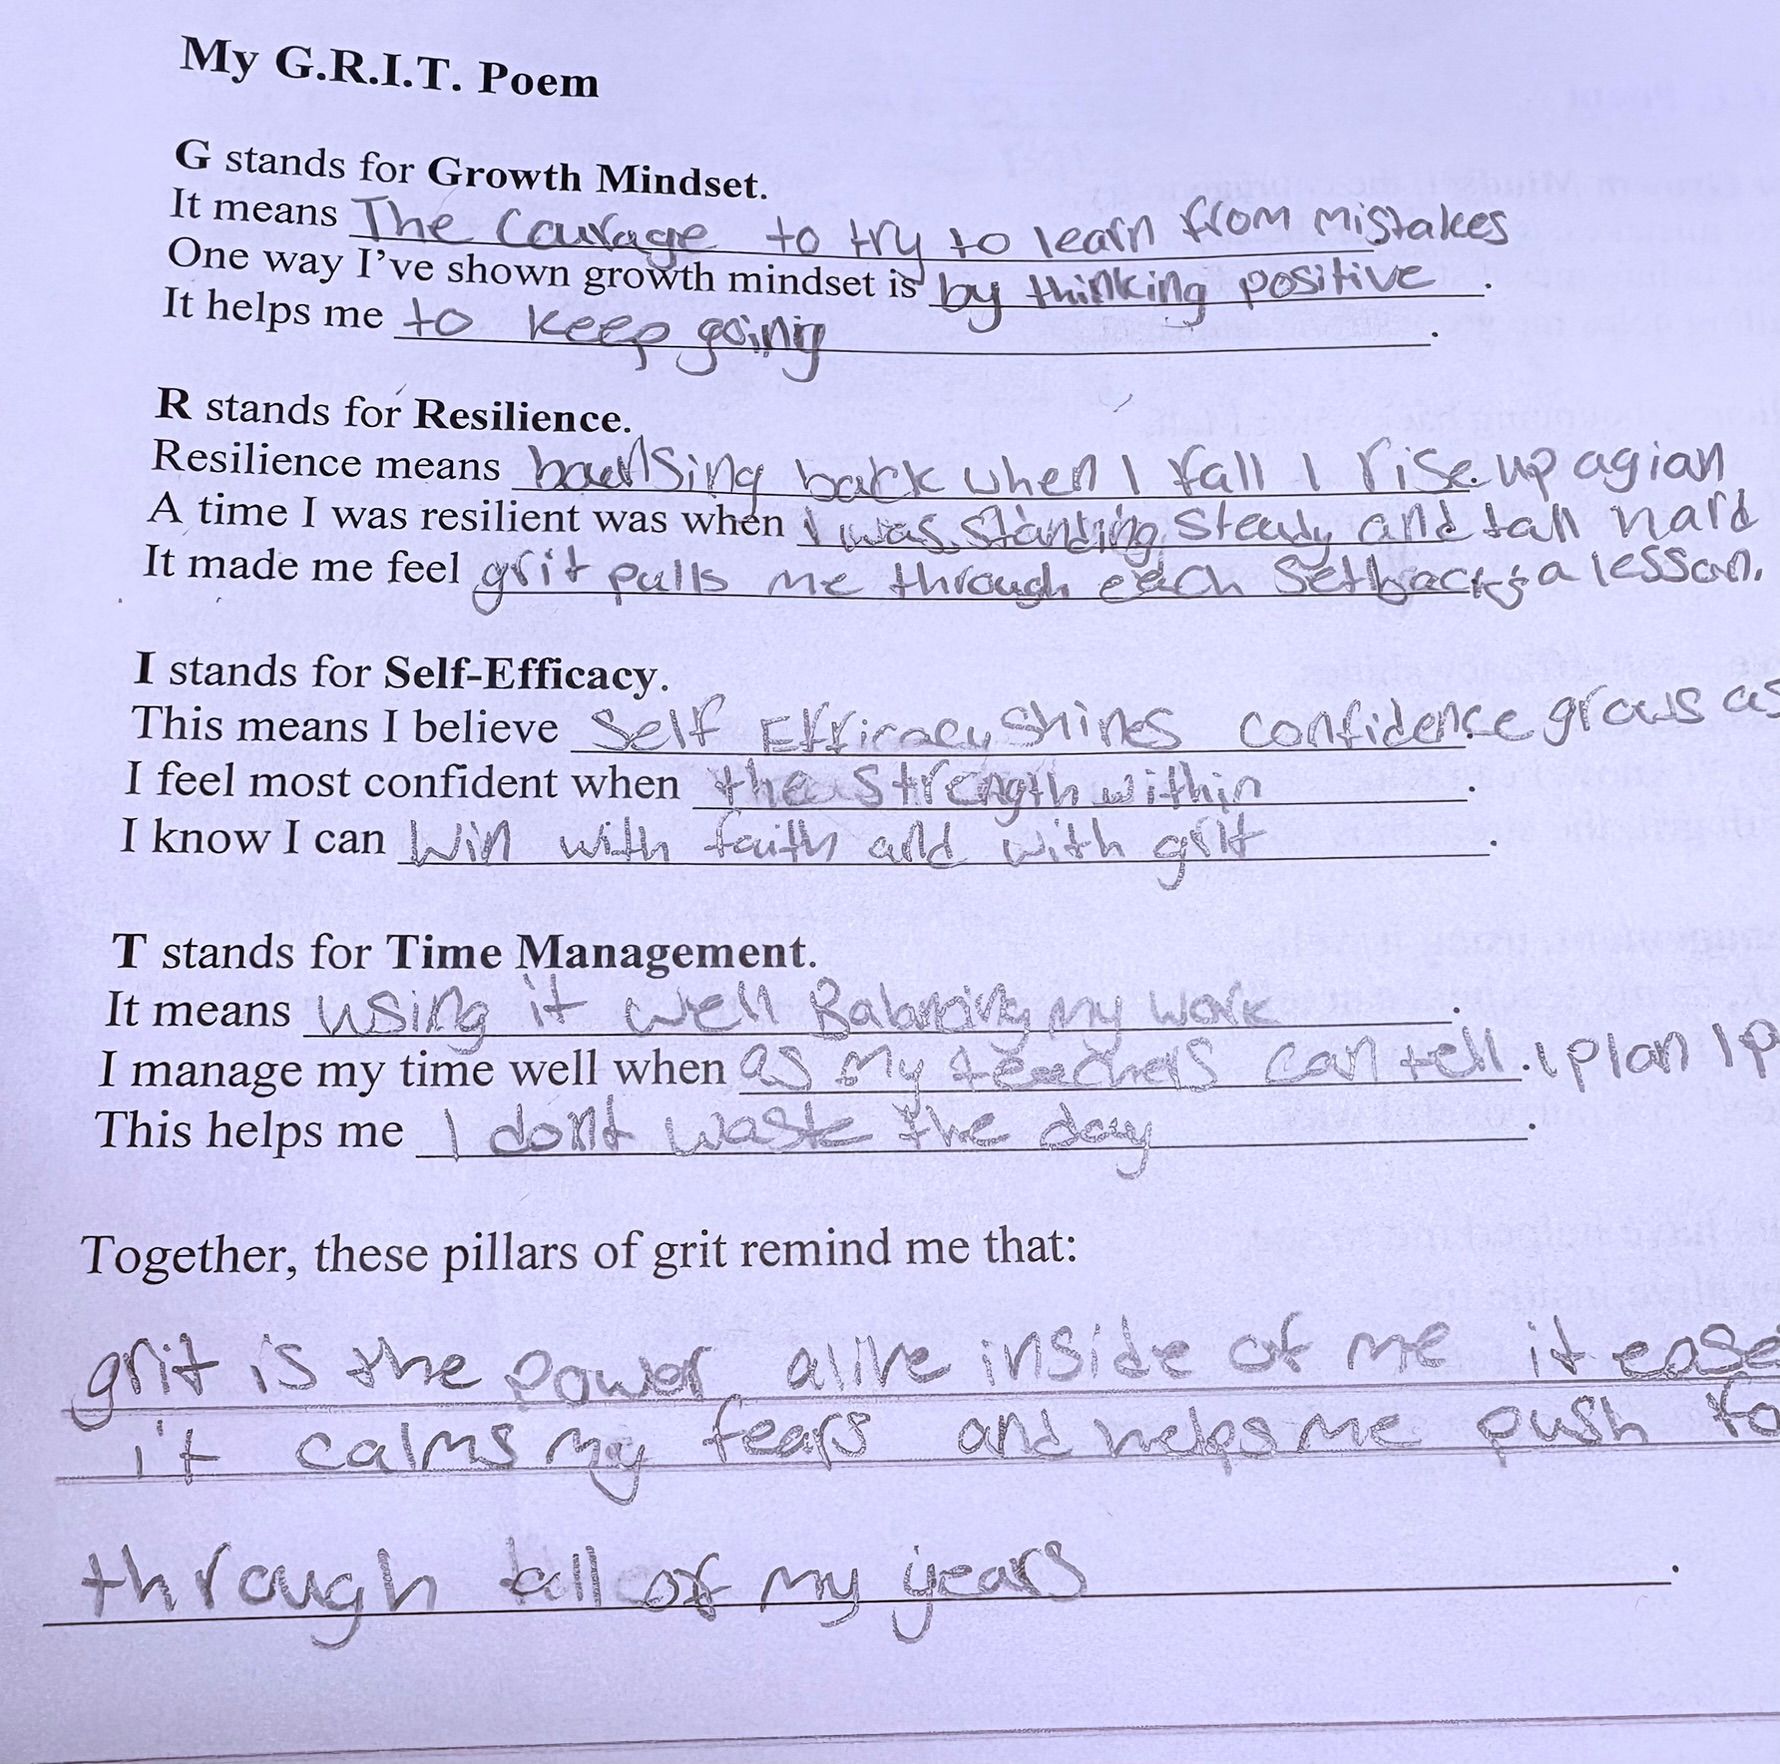 My G.R.I.T. Poem
G stands for Growth Mindset.
It means The Courage to try to learn from mistakes
One way I've shown growth mindset is by thinking positive.
It helps me to keep going.
R stands for Resilience.
Resilience means back when I fall I rise up agian
A time I was resilient was when I was standing steady and tall hard
It made me feel grit pulls me through each setback a lesson.
I stands for Self-Efficacy.
This means I believe Self Efficacy shines confidence grows as
I feel most confident when the strength within.
I know I can win with faith and with grit.
T stands for Time Management.
It means using it well Balancing my work.
I manage my time well when as my teachers can tell. I plan I p
This helps me I dont waste the day.
Together, these pillars of grit remind me that:
grit is the power alive inside of me it ease
it calms my fears and helps me push fo
through all of my years.